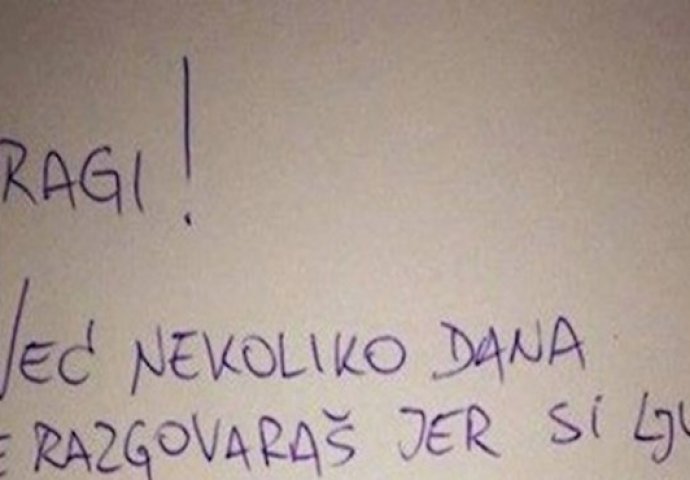 RAGI!
VEĆ NEKOLIKO DANA
E RAZGOVARAŠ JER SI LJU